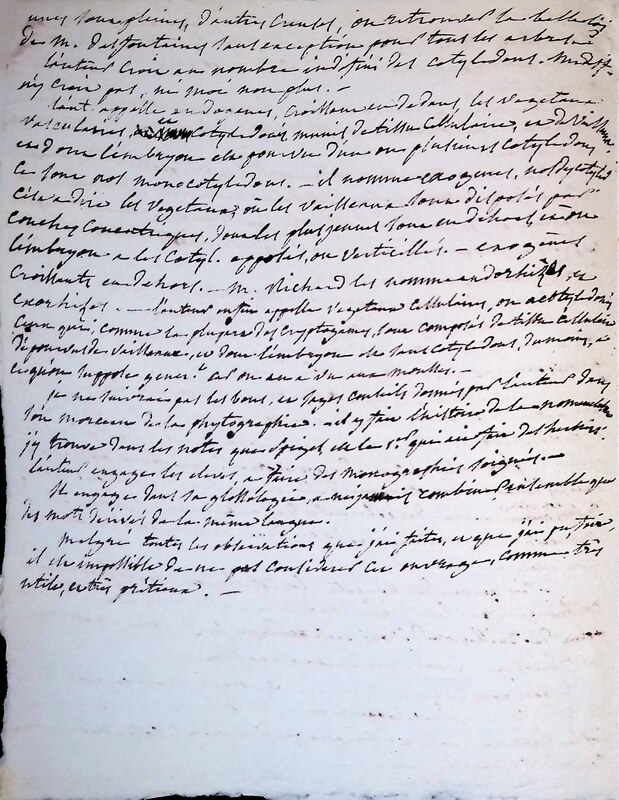 unes sont pleines, d'autres creuses, on retrouve la belle loi
de M. Desfontaines sans exception pour tous les arbres
l'auteur croit au nombre indéfini des cotyledons. M. Desf.
n'y croit pas, ni moi non plus. —
l'aut. appelle endogenes, croissant en dedans, les vegetaux
vasculaires, cotyledonés, munis de tissu cellulaire, et de vaiss.
et dont l'embryon est pourvu d'un ou plusieurs cotyledons
ce sont nos monocotyledons. — il nomme exogenes, nos dycotyled.
c'est a dire les vegetaux, où les vaisseaux sont disposés par
couches concentriques, dont les plus jeunes sont en dehors, et dont
l'embryon a les cotyl. opposés, ou verticillés. — exogènes
croissants en dehors. — M. Richard les nomme endorhizes, et
exorhizes. — l'auteur enfin appelle vegetaux cellulaires, ou acotyledonés
ceux qui, comme la plupart des cryptogames, sont composés de tissu cellulaire
dépourvu de vaisseaux, et dont l'embryon est sans cotyledons, du moins, a
ce qu'on suppose gener.t car on en a vu aux mousses. —
je ne suivrai pas les bons, et sages conseils donnés par l'auteur dans
son morceau de la phytographie. il y fait l'histoire de la nomenclature
j'y trouve dans les notes que Spigel, est le 1.er qui ait fait des herbiers.
l'auteur engage les eleves, a faire des monographies soignées. —
Il engage dans sa glossologie, a ne jamais combiner ensemble que
des mots dérivés de la même langue.
Malgré toutes les observations que j'ai faites, et que j'ai pu faire
il est impossible de ne pas considerer cet ouvrage, comme très
utile, et très prétieux. —